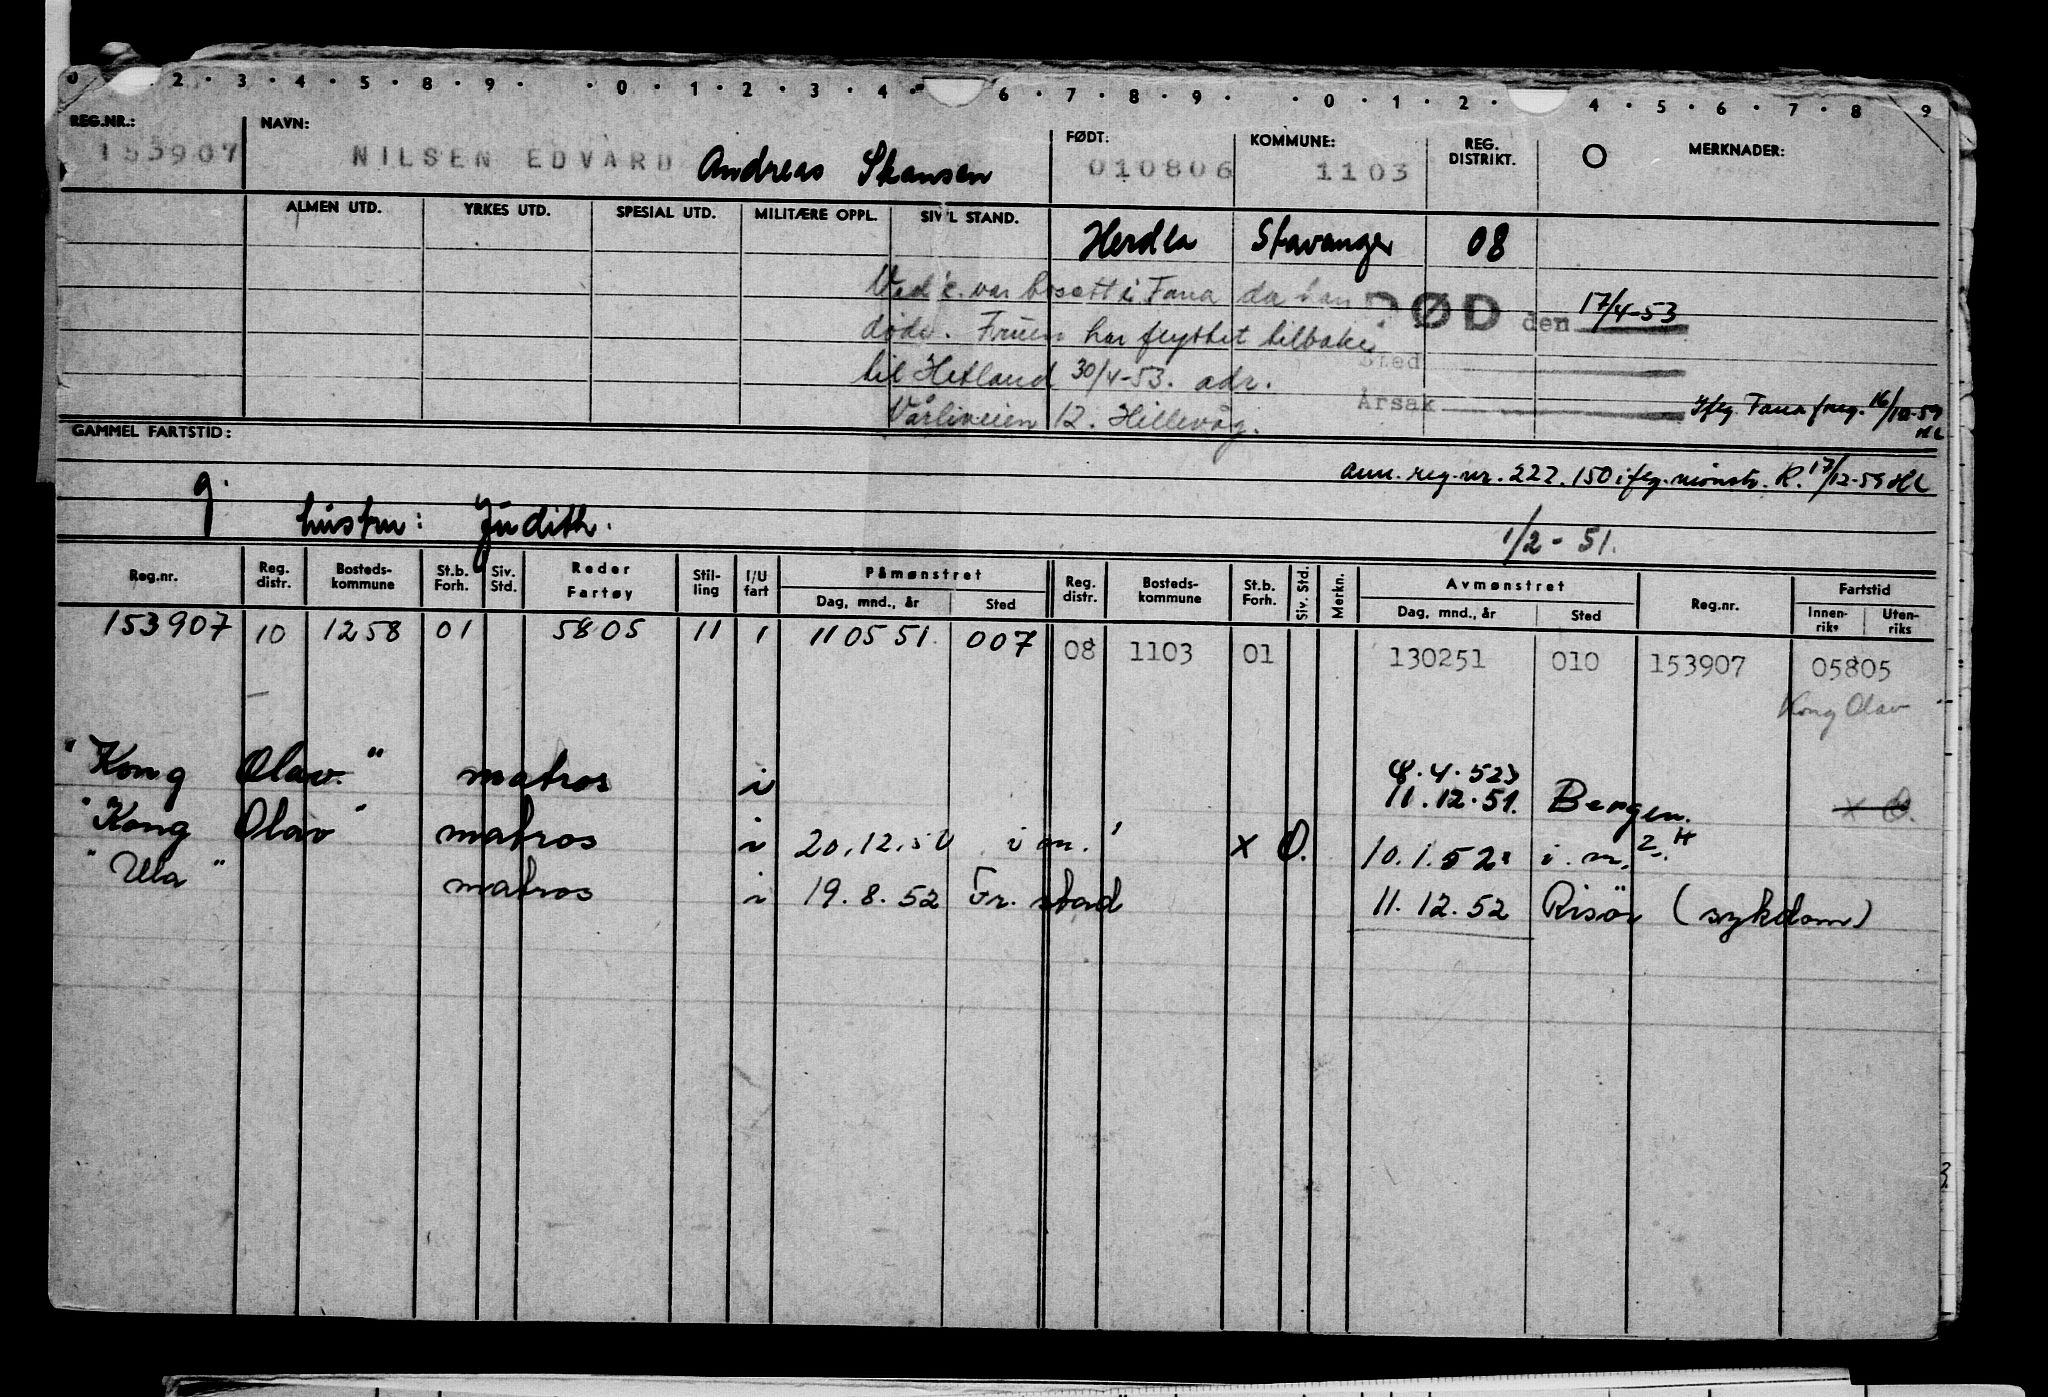 0 2 · 3 · 4 · 5 · 8 · 9 · · 0 · 1 · 2 · 3 · 4 · 6 · 7 · 8 · 9 · · 0 · 1 · 2 · 4 · 5 · 6 · 7 · 8 9
REG.NR.: NAVN: FØDT: KOMMUNE: REG. DISTRIKT. O MERKNADER:
153907 NILSEN EDVARD Andreas Skansen 010806 1103
ALMEN UTD. YRKES UTD. SPESIAL UTD. MILITÆRE OPPL. SIV'L STAND. Herdla Stavanger 08
Ved k. var bosatt i Fana da han DØD den 17/4-53
døde. Fruen har flyttet tilbake Sted
til Hetland 30/4-53. adr. Årsak
Vårliveien 12. Hillevåg. Iflg. Fana freg. 16/10-59 HL
GAMMEL FARTSTID:
ann. reg.nr. 227.150 iflg. mønstr. R. 17/12-59 HL
g.
hustru: Judith. 1/2 - 51.
Reg.nr. Reg. distr. Bosteds-kommune St.b. Forh. Siv. Std. Reder Fartøy Stil-ling I/U fart Påmønstret Dag, mnd., år Sted Reg. distr. Bosteds-kommune St.b. Forh. Siv. Std. Merkn. Avmønstret Dag, mnd., år Sted Reg.nr. Fartstid Innen-riks Uten-riks
153907 10 1258 01 5805 11 1 110551 007 08 1103 01 130251 010 153907 05805
Kong Olav
"Kong Olav." matros i (8.4.52)
11.12.51. Bergen. x O.
"Kong Olav" matros i 20.12.50 i m. x O. 10.1.52 i. m.
"Ula" matros i 19.8.52 Fr. stad 11.12.52 Risör (sykdom)